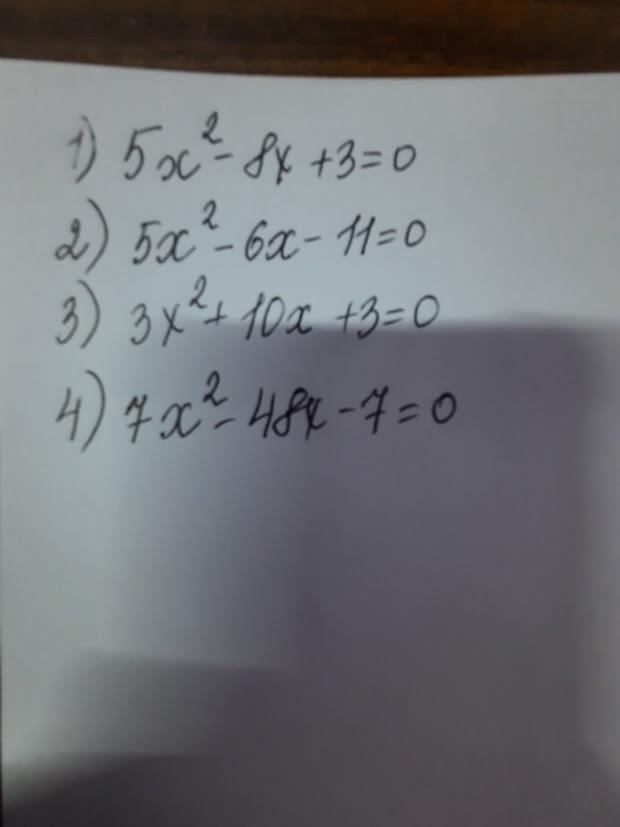 1) 5x² - 8x + 3 = 0
2) 5x² - 6x - 11 = 0
3) 3x² + 10x + 3 = 0
4) 7x² - 48x - 7 = 0